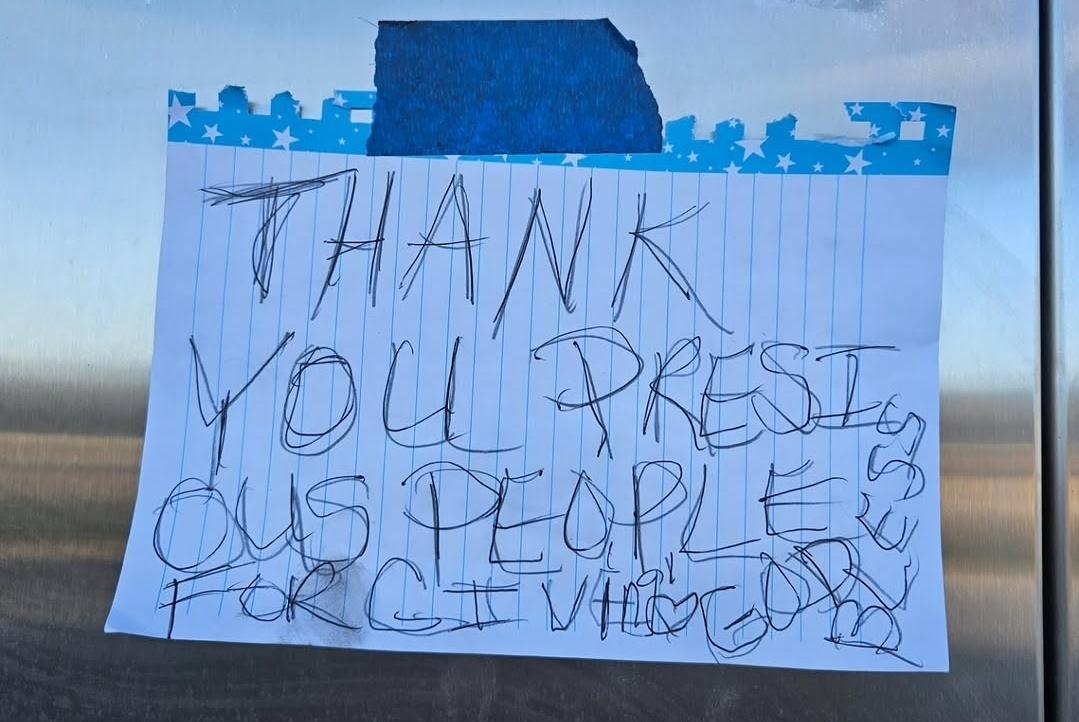 THANK
YOU PRESI
OUS PEOPLE
FOR GIVING GOD
BLESS